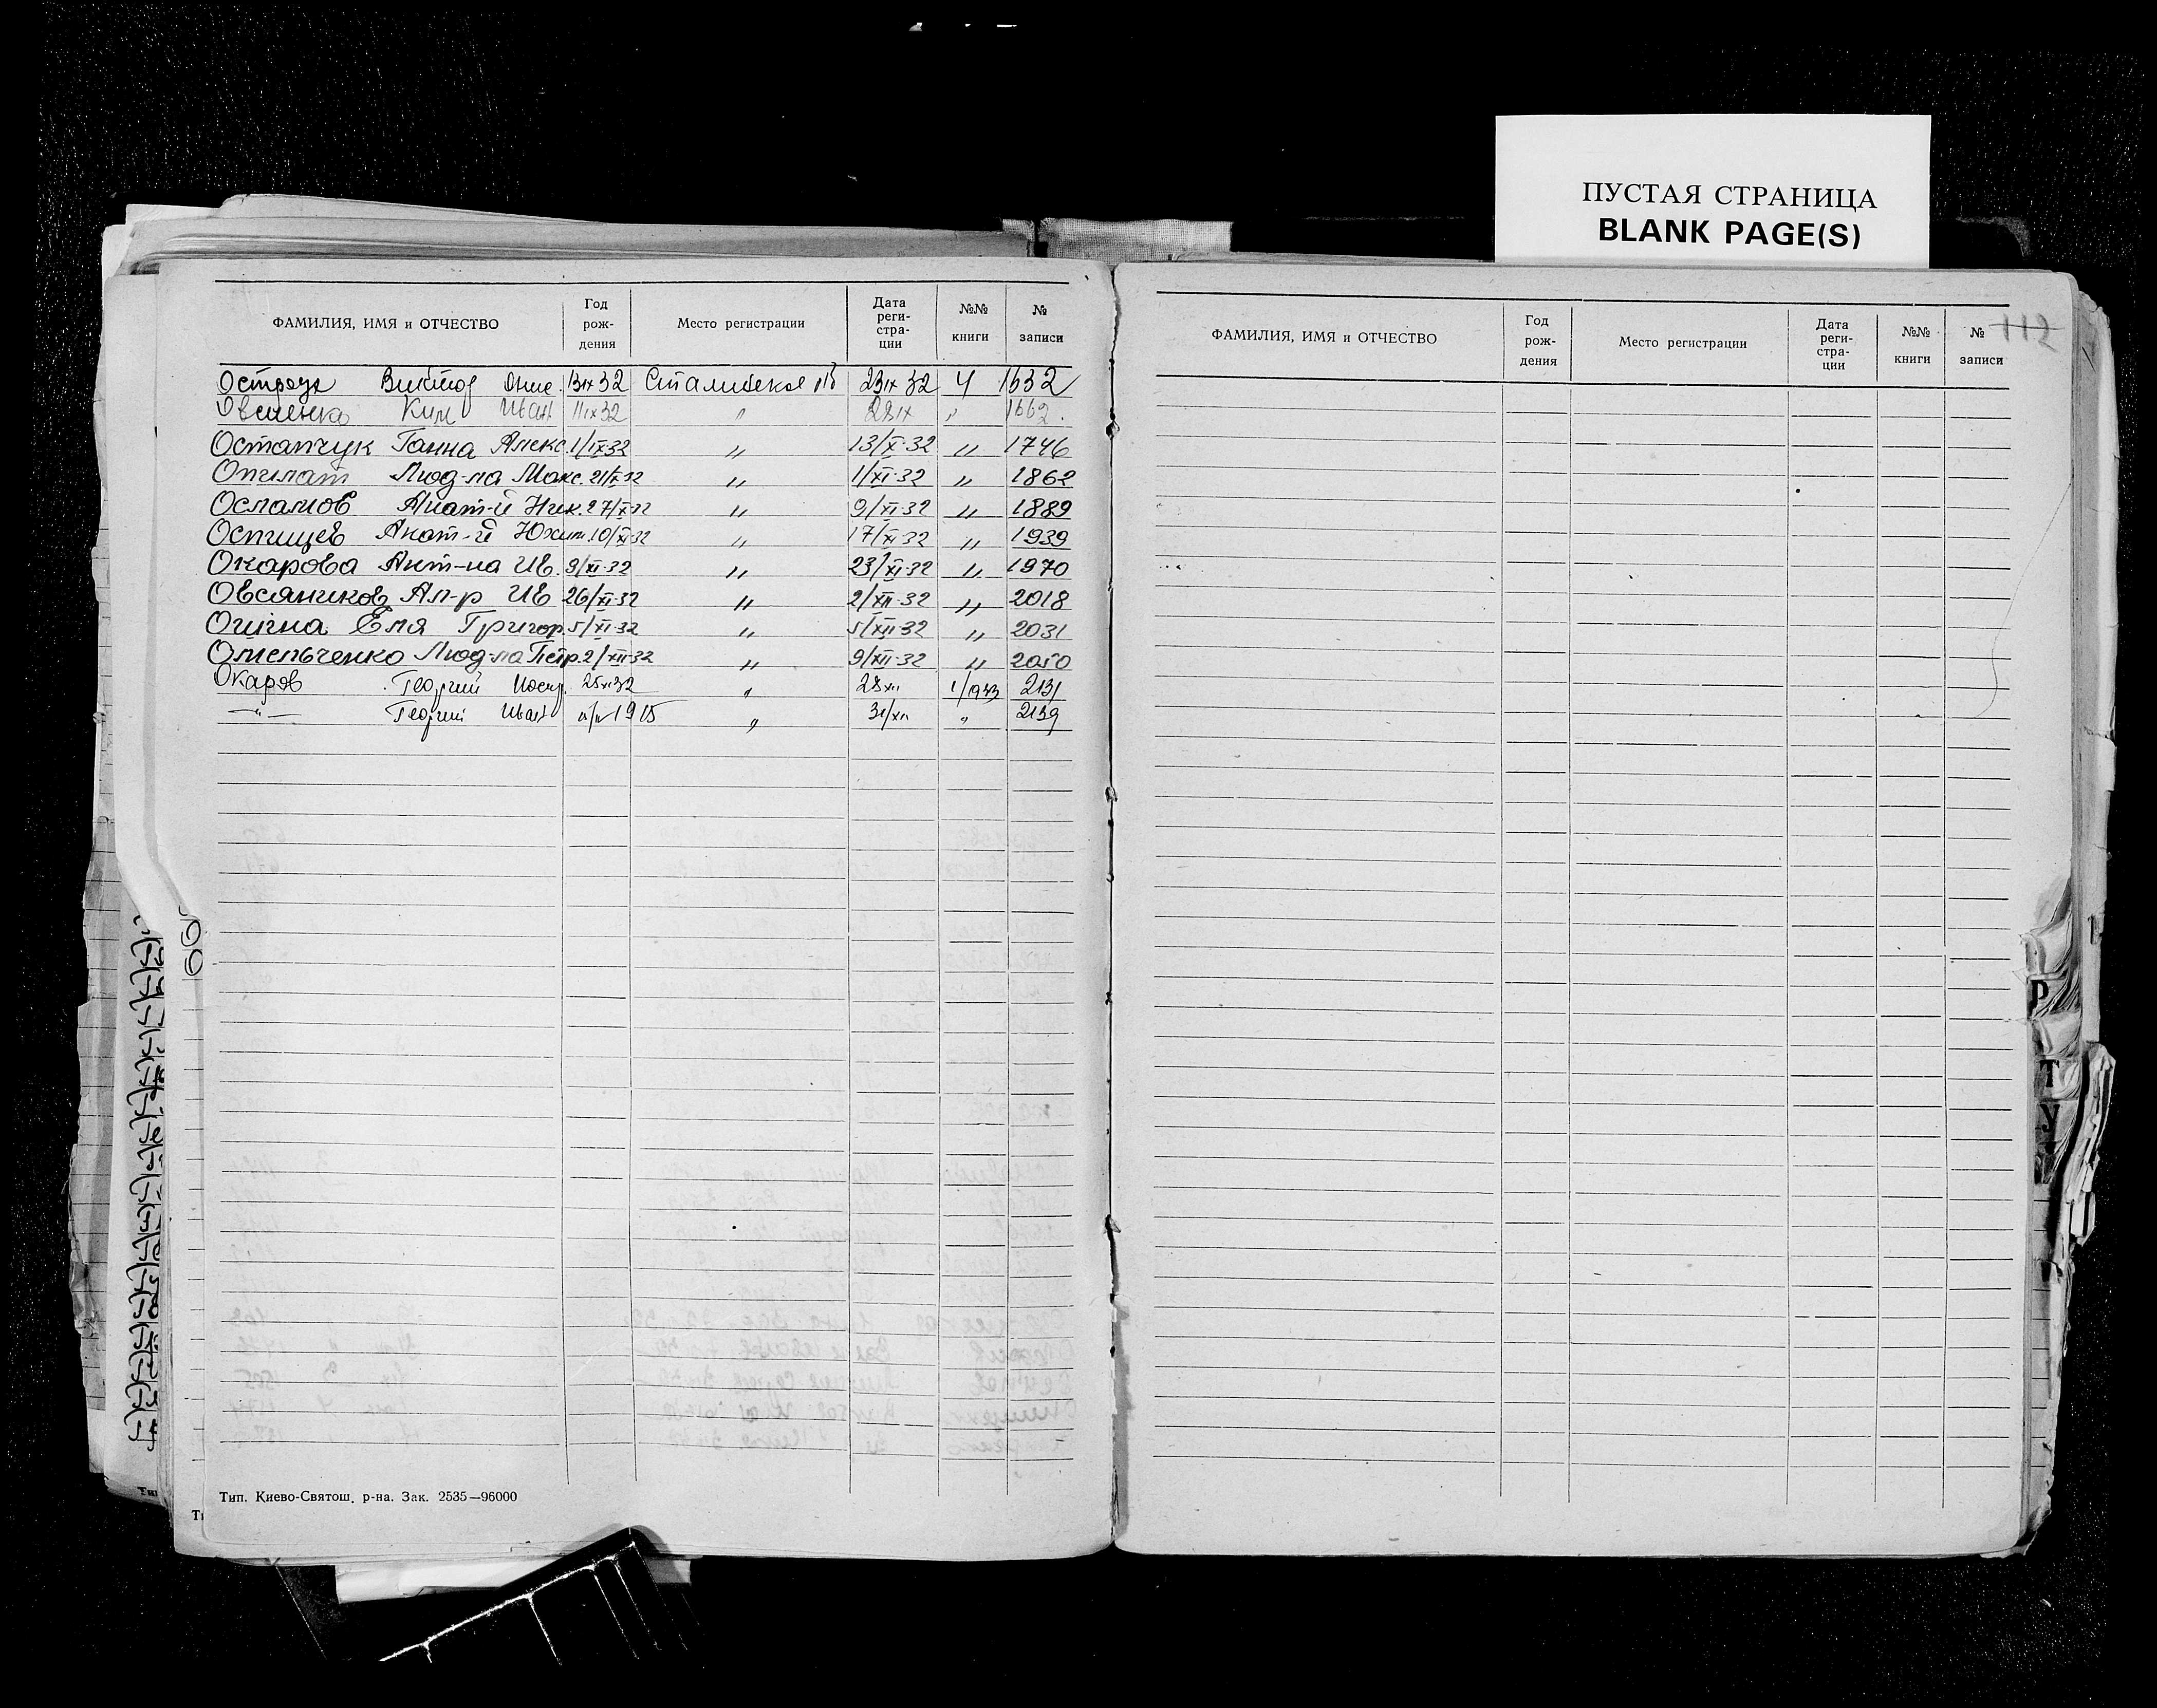 ПУСТАЯ СТРАНИЦА
BLANK PAGE(S)
ФАМИЛИЯ, ИМЯ и ОТЧЕСТВО Год рождения Место регистрации Дата регистрации №№ книги № записи
Виктор 13 IX 32 23 IX 32 4 1632
Ким Иван 11 IX 32 " 28 IX " 1662.
Остапчук Ганна Алекс. 1/IX-32 " 13/X-32 " 1746
Опилат Люд-ла Макс. 21/X-32 " 1/XI-32 " 1862
Осламов Анат-й Ник. 27/X-32 " 9/XI-32 " 1889
Анат-й Юхим. 10/XI-32 " 17/XI-32 " 1939
Окарова Ант-на Ив. 9/XI-32 " 23/XI-32 " 1970
Овсяников Ал-р Ив 26/XI-32 " 2/XII-32 " 2018
Еля Григор. 5/XI-32 " 5/XII-32 " 2031
Омельченко Люд-ла Петр. 2/XII-32 " 9/XII-32 " 2050
Окаров Георгий 25 XI 32 " 28 XII 1/1933 2131
—"— Георгий Иван 1915 " 31/XII " 2139
Тип. Киево-Святош. р-на. Зак. 2535—96000
ФАМИЛИЯ, ИМЯ и ОТЧЕСТВО Год рождения Место регистрации Дата регистрации №№ книги № записи
Р
Т
У